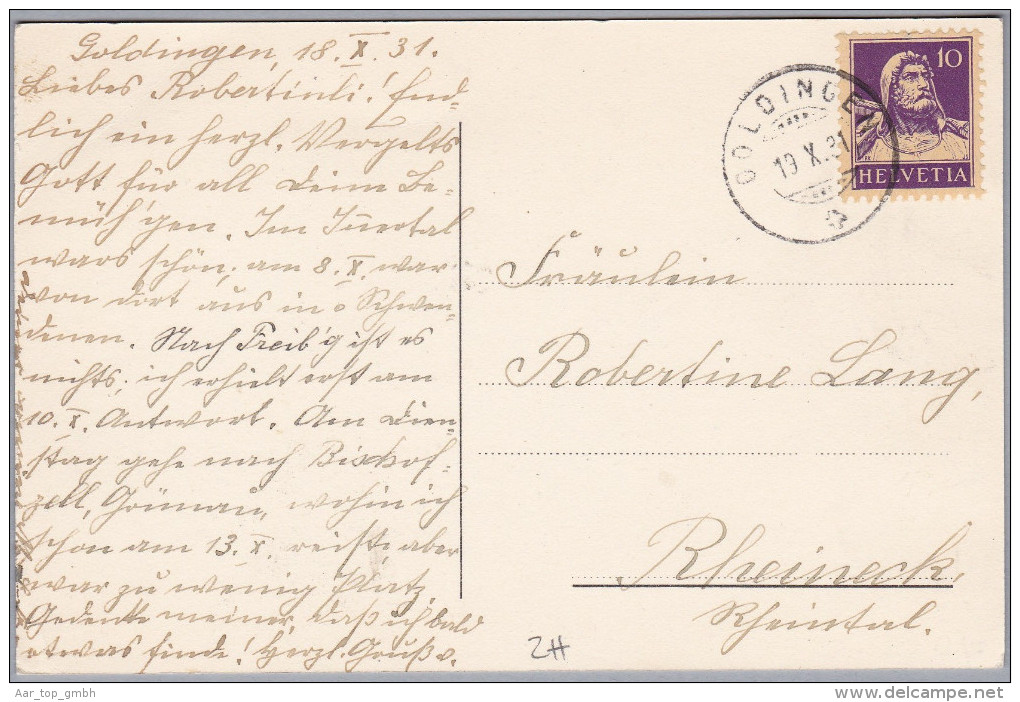 Goldingen, 18. X. 31.
Liebes Robertinli! End-
lich ein herzl. Vergelts
Gott für all Deine Be-
müh'gen. Im Innertal
wars schön, am 8. X. war
von dort aus in Schwen-
denen. Nach Freib'g ist es
nichts, ich erhielt erst am
10. X. Antwort. Am Dien-
stag gehe nach Bischof-
zell, wohin ich
schon am 13. X. reiste, aber
war zu wenig Platz.
Gedenke meiner, daß ich bald
etwas finde! Herzl. Gruß v.
HELVETIA
10
GOLDINGEN
19. X. 31
Fräulein
Robertine Lang,
Rheineck,
Rheintal.
ZH
Aar_top_gmbh
www.delcampe.net